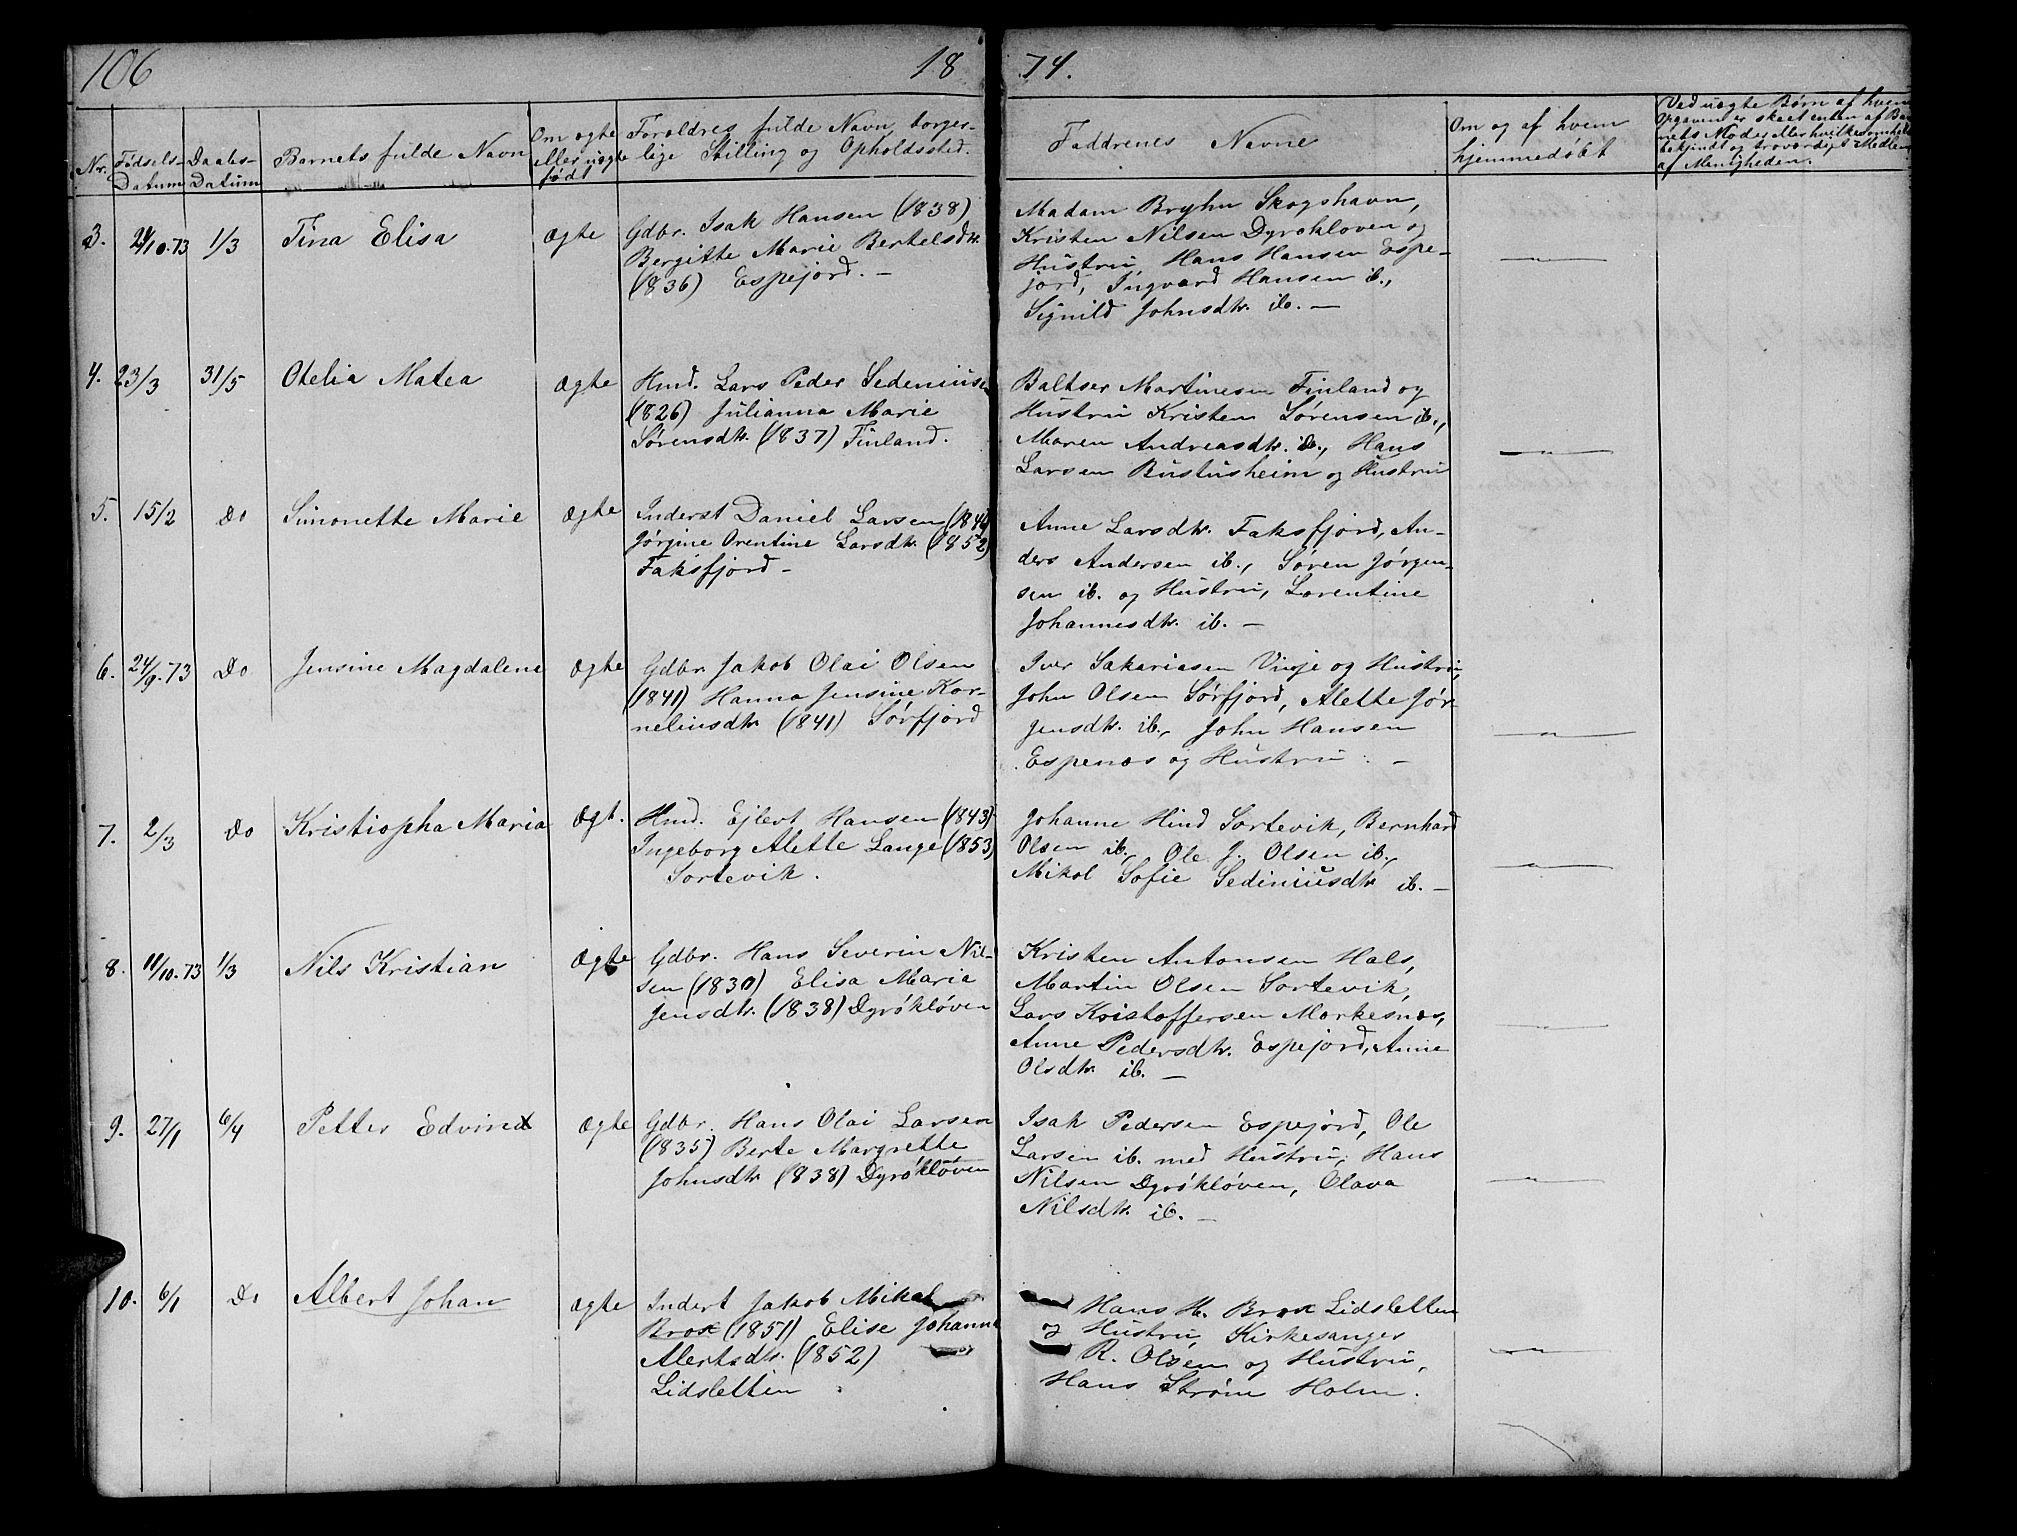 106
18
74.
Nr.
Fødsels-
Datum
Daabs-
Datum
Barnets fulde Navn
Om ægte
eller uægte
født
Foroldres fulde Navn, borger-
lige Stilling og Opholdssted.
Faddrenes Navne
Om og af hvem
hjemmedøbt
Ved uægte Børn af hvem
Opgaven er skeet enten af Bar
nets Moder eller hvilkesomhelst
bekjendt og troværdigt Medlem
af Menigheden.
3. 21/10.73 1/3 Tina Elisa ægte
Gdbr. Isak Hansen (1838)
Bergitte Marie Bertelsdtr.
(1836) Espejord. —
Madam Bryhn Skogshavn,
Kristen Nilsen Dyrøkløven og
Hustru, Hans Hansen Espe-
jord, Ingvard Hansen ib.,
Signild Johnsdtr. ib. —
4. 23/3 31/5 Otelia Matea ægte
Hmd. Lars Peder Sedeniusen
(1826) Julianna Marie
Sørensdtr. (1837) Finland.
Baltser Martinesen Finland og
Hustru Kristen Sørensen ib.,
Maren Andreasdtr. ib., Hans
Larsen Bustusheim og Hustru
5. 15/2 Do Simonette Marie ægte
Inderst Daniel Larsen
Jørgine Orentine Larsdtr. (1852)
Faksfjord —
Anne Larsdtr. Faksfjord, An-
ders Andersen ib., Søren Jørgen-
sen ib. og Hustru, Lorentine
Johannesdtr. ib. —
6. 24/9.73 Do Jensine Magdalena ægte
Gdbr. Jakob Olai Olsen
(1841) Hanna Jensine Kor-
neliusdtr. (1841) Sørfjord
Iver Sakariasen Vinje og Hustru,
John Olsen Sørfjord, Alette Jør-
gensdtr. ib., John Hansen
Espenæs og Hustru. —
7. 2/3 Do Kristiopha Maria ægt.
Hmd. Ejlert Hansen (1843)
Ingeborg Alette Lange (1853)
Sortevik.
Johanne Hind Sortevik, Bernhard
Olsen ib., Ole J. Olsen ib.,
Mikol Sofie Sediniusdtr ib. —
8. 11/10.73 1/3 Nils Kristian ægte
Gdbr. Hans Severin Nil-
sen (1830) Elisa Maria
Jensdtr. (1838) Dyrøkløven
Kristen Antonsen Hals,
Martin Olsen Sortevik,
Lars Kristoffersen Mørkesnæs,
Anne Pedersdtr. Espejord, Anne
Olsdtr ib. —
9. 27/1 6/4 Petter Edvind ægte
Gdbr. Hans Olai Larsen
(1835) Berte Margrette
Johnsdtr (1838) Dyrøkløven
Isak Pedersen Espejord, Ole
Larsen ib. med Hustru, Hans
Nilsen Dyrøkløven, Olava
Nilsdtr. ib. —
10. 6/1 Do Albert Johan ægte
Indert Jakob Mikal
Brox (1851) Elise Johanna
Alertsdtr. (1852)
Lidsletten
Hans H. Brox Lidsletten
og Hustru, Kirkesanger
R. Olsen og Hustru,
Hans Strøm Holm.